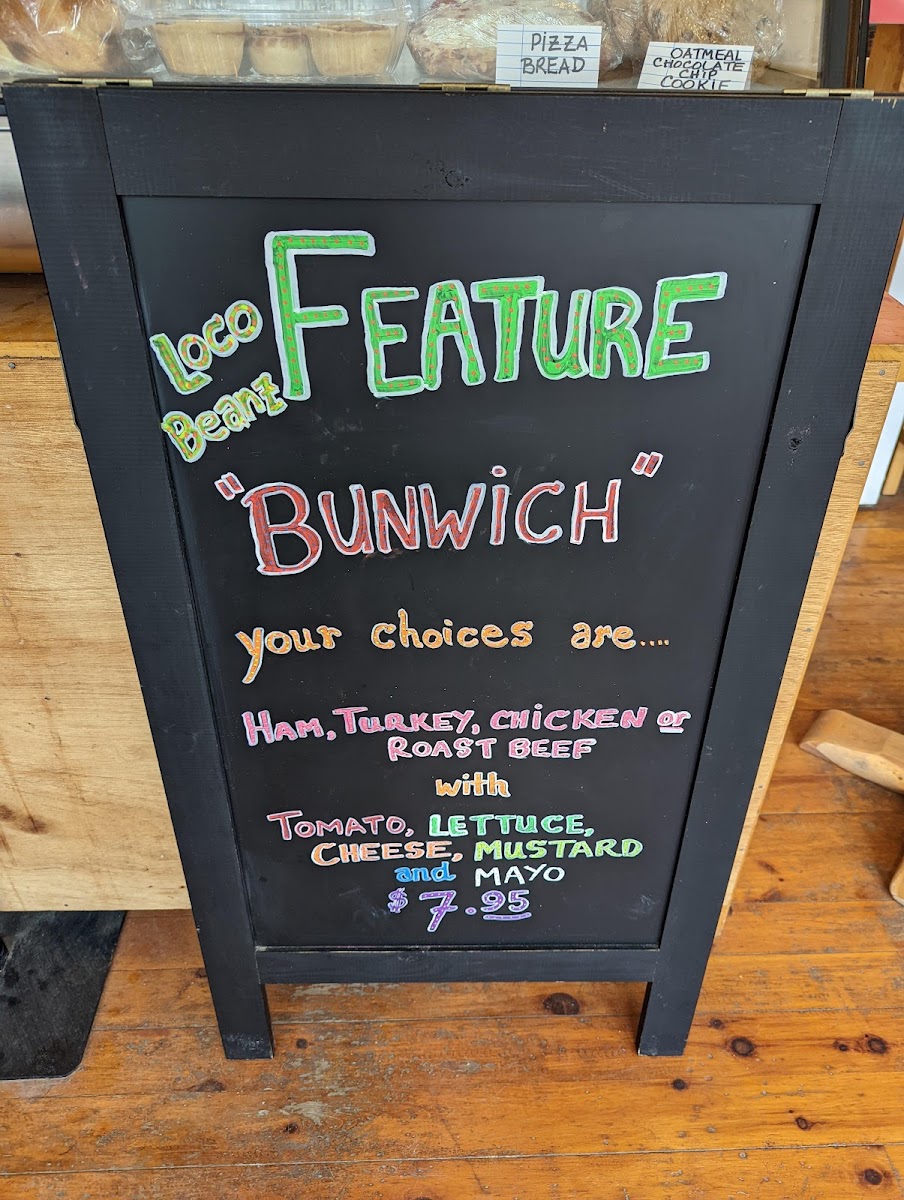 PIZZA
BREAD
OATMEAL
CHOCOLATE
CHIP
COOKIE
Loco
Beanz
FEATURE
"BUNWiCH"
your choices are....
HAM, TURKEY, CHiCKEN or
ROAST BEEF
with
TOMATO, LETTUCE,
CHEESE, MUSTARD
and MAYO
$7.95